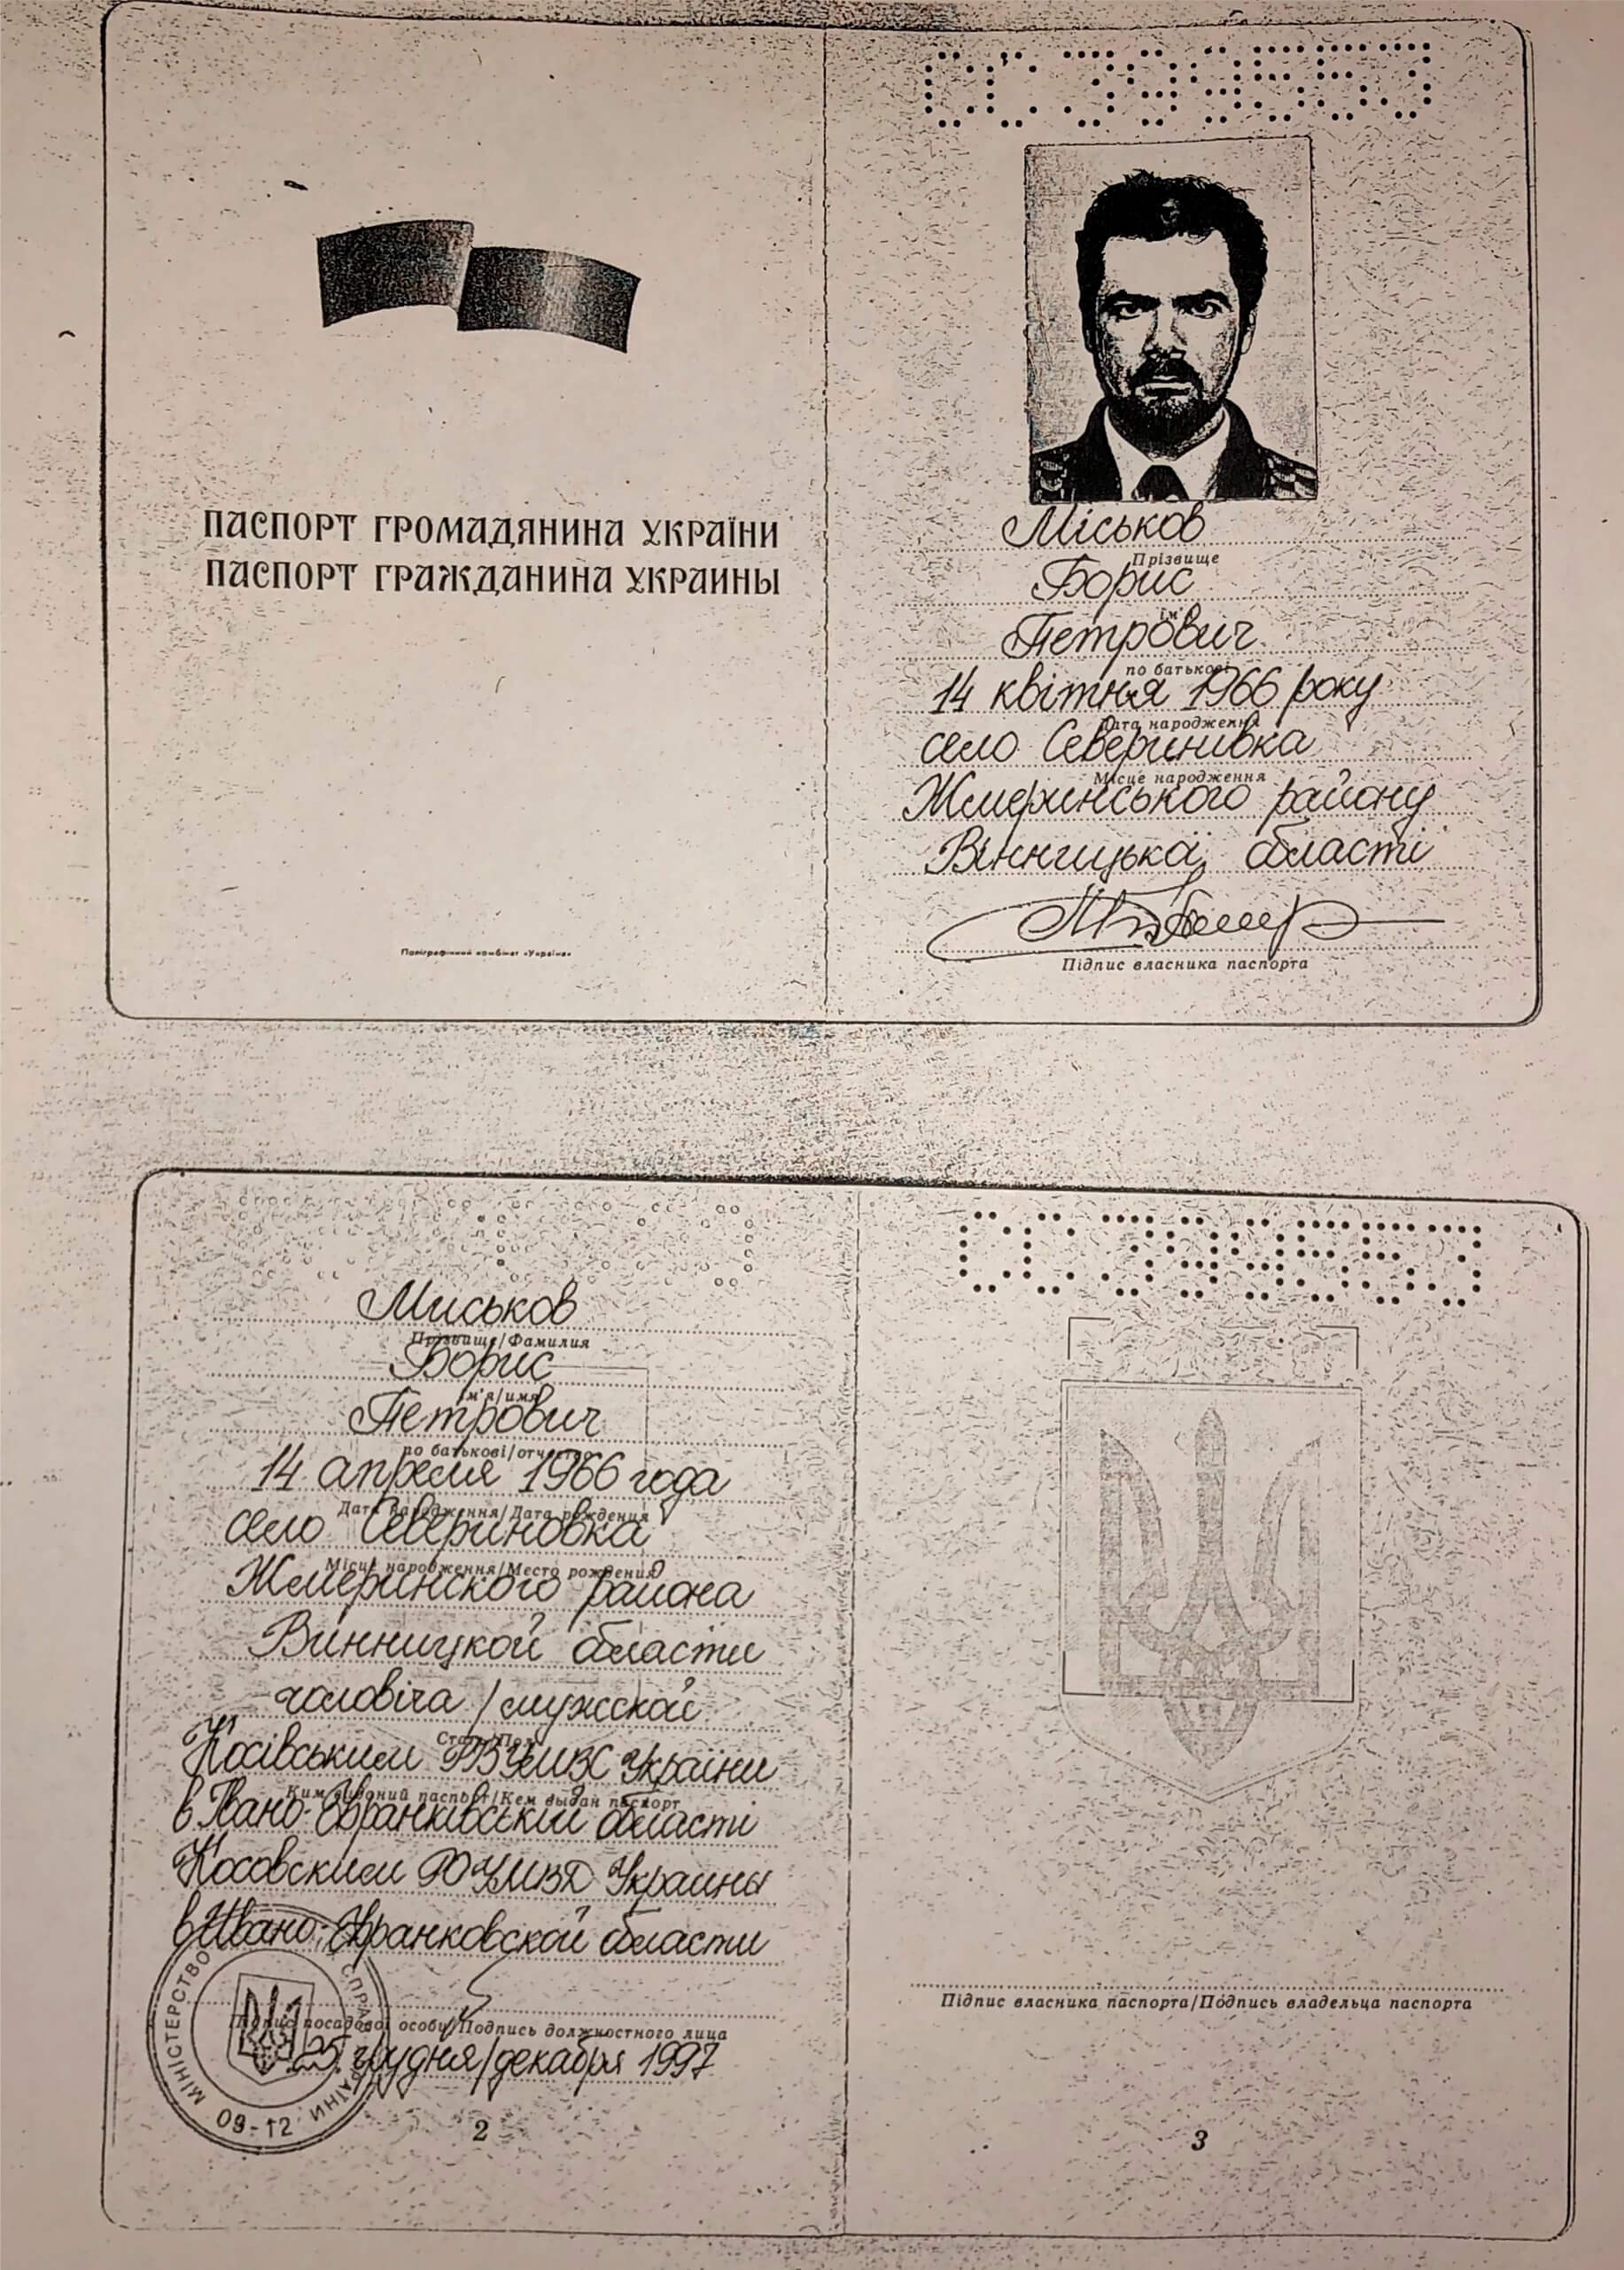 ПАСПОРТ ГРОМАДЯНИНА УКРАЇНИ
ПАСПОРТ ГРАЖДАНИНА УКРАИНЫ
Поліграфічний комбінат «Україна»
Міськов
Прізвище
Борис
ім'я
Петрович
по батькові
14 квітня 1966 року
Дата народження
село Северинівка
Місце народження
Жмеринського району
Вінницька області
Підпис власника паспорта
Миськов
Прізвище/Фамилия
Борис
Ім'я/имя
Петрович
по батькові/отчество
14 апреля 1966 года
Дата народження/Дата рождения
село Севериновка
Місце народження/Место рождения
Жмеринского района
Винницкой области
чоловіча/мужской
Стать/Пол
Косівським РВУМВС України
Ким виданий паспорт/Кем выдан паспорт
в Івано-Франківській області
Косовским РОУМВД Украины
в Ивано-Франковской области
Підпис посадової особи/Подпись должностного лица
25 грудня/декабря 1997
МІНІСТЕРСТВО СПРАВ УКРАЇНИ
09-12
2
Підпис власника паспорта/Подпись владельца паспорта
3